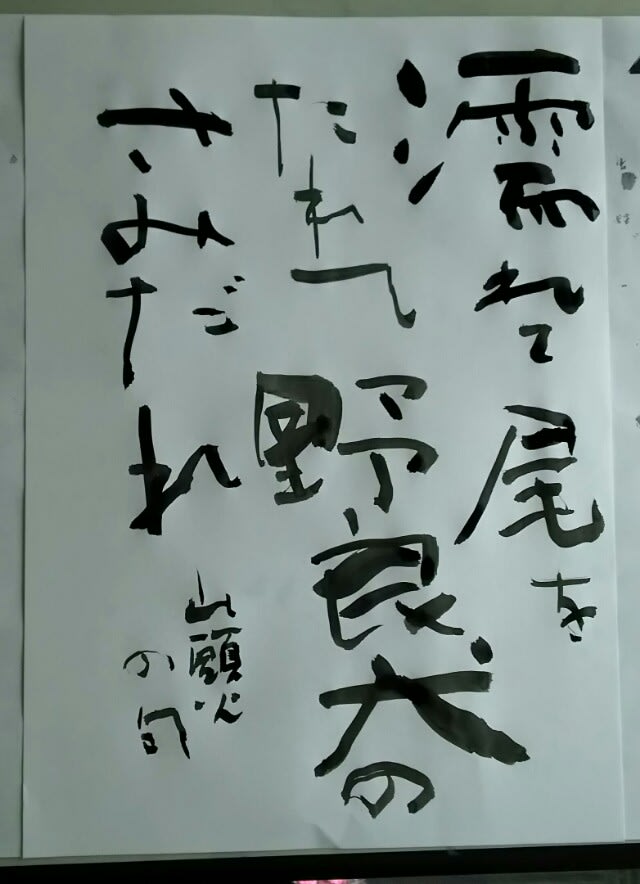 濡れて尾を
たれて野良犬の
さみだれ
山頭火
の句